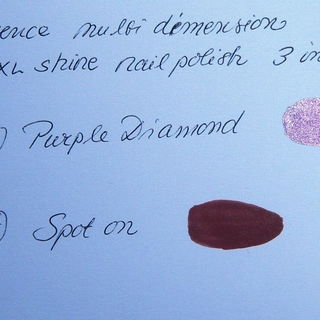 ence multi dimension
XL shine nail polish 3 in
) Purple Diamond
) Spot on